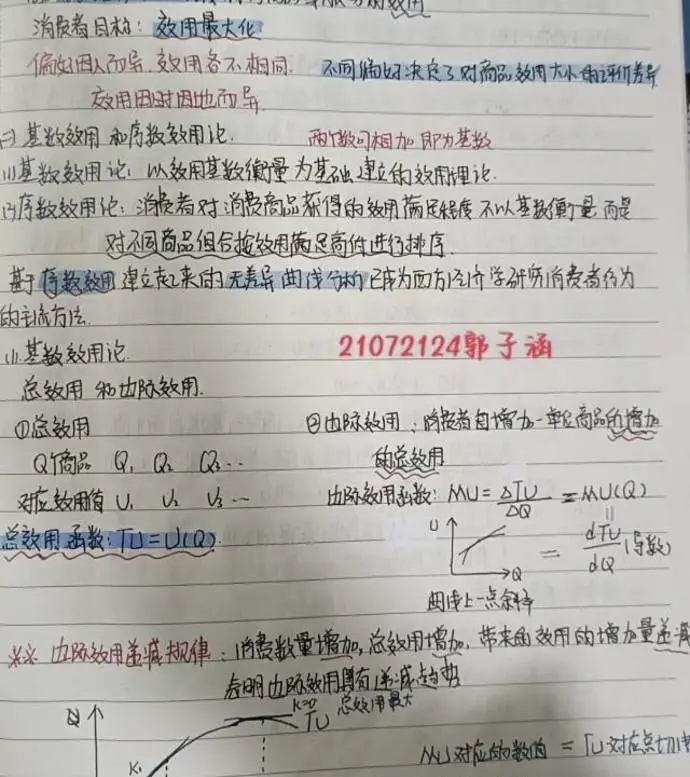 效用
消费者目标：效用最大化
偏好因人而异，效用各不相同. 不同偏好决定了对商品效用大小的评价差异
效用因时因地而异
(二)基数效用和序数效用论. 两个数可相加即为基数
(1)基数效用论：以效用基数衡量为基础建立的效用理论.
(2)序数效用论：消费者对消费商品获得的效用满足程度不以基数衡量而是
对不同商品组合按效用满足高低进行排序.
基于序数效用建立起来的无差异曲线分析已成为西方经济学研究消费者行为
的主流方法.
(1).基数效用论
21072124郭子涵
总效用和边际效用.
①总效用
②边际效用：消费者每增加一单位商品所增加
的总效用
Q个商品 Q₁ Q₂ Q₃…
对应效用值 U₁ U₂ U₃ …
边际效用函数：MU=ΔTU/ΔQ=MU(Q)
总效用函数：TU=U(Q).
U
Q
= dTU/dQ (导数)
曲线上一点斜率
※※ 边际效用递减规律：消费数量增加,总效用增加,带来的效用的增加量递减
表明边际效用具有递减趋势
K=0 总效用最大
TU
K₁
MU对应的数值 = TU对应点切线